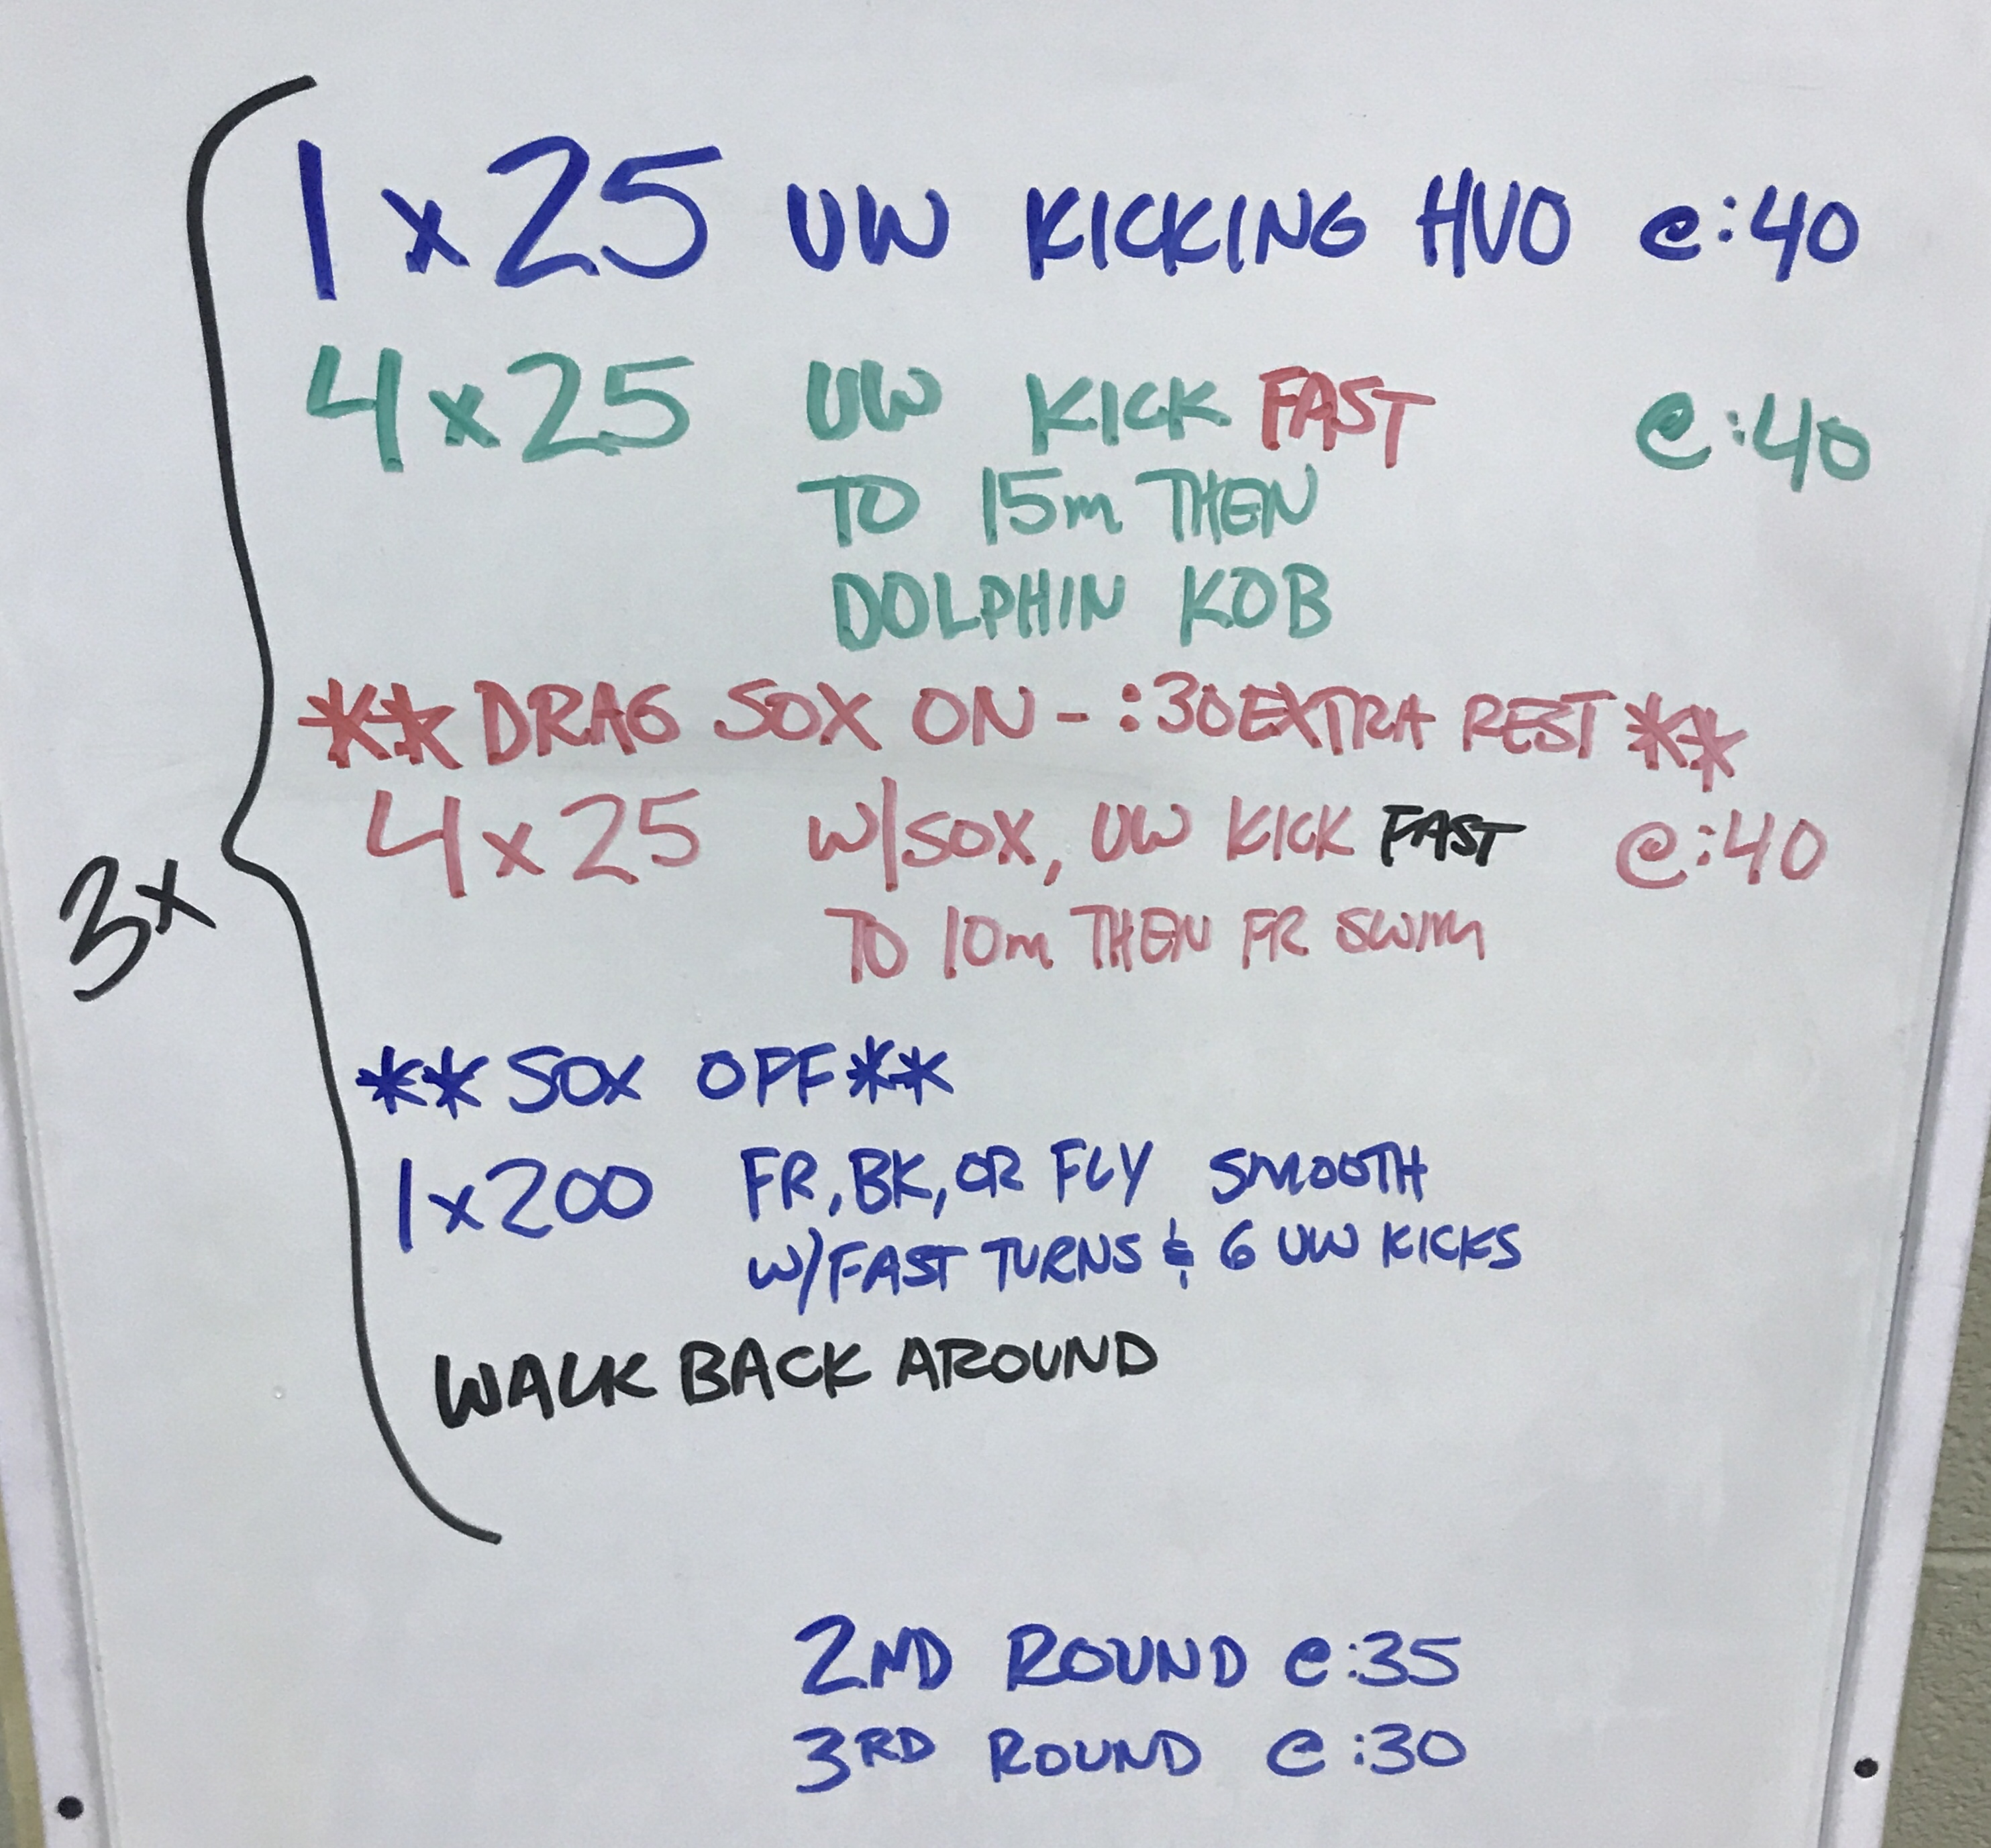 1 x 25 UW KICKING HVO @ :40
4 x 25 UW KICK FAST @ :40
TO 15m THEN
DOLPHIN KOB
** DRAG SOX ON - :30 EXTRA REST **
3x
4 x 25 W/SOX, UW KICK FAST @ :40
TO 10m THEN FR SWIM
** SOX OFF **
1 x 200 FR, BK, OR FLY SMOOTH
W/FAST TURNS & 6 UW KICKS
WALK BACK AROUND
2ND ROUND @ :35
3RD ROUND @ :30